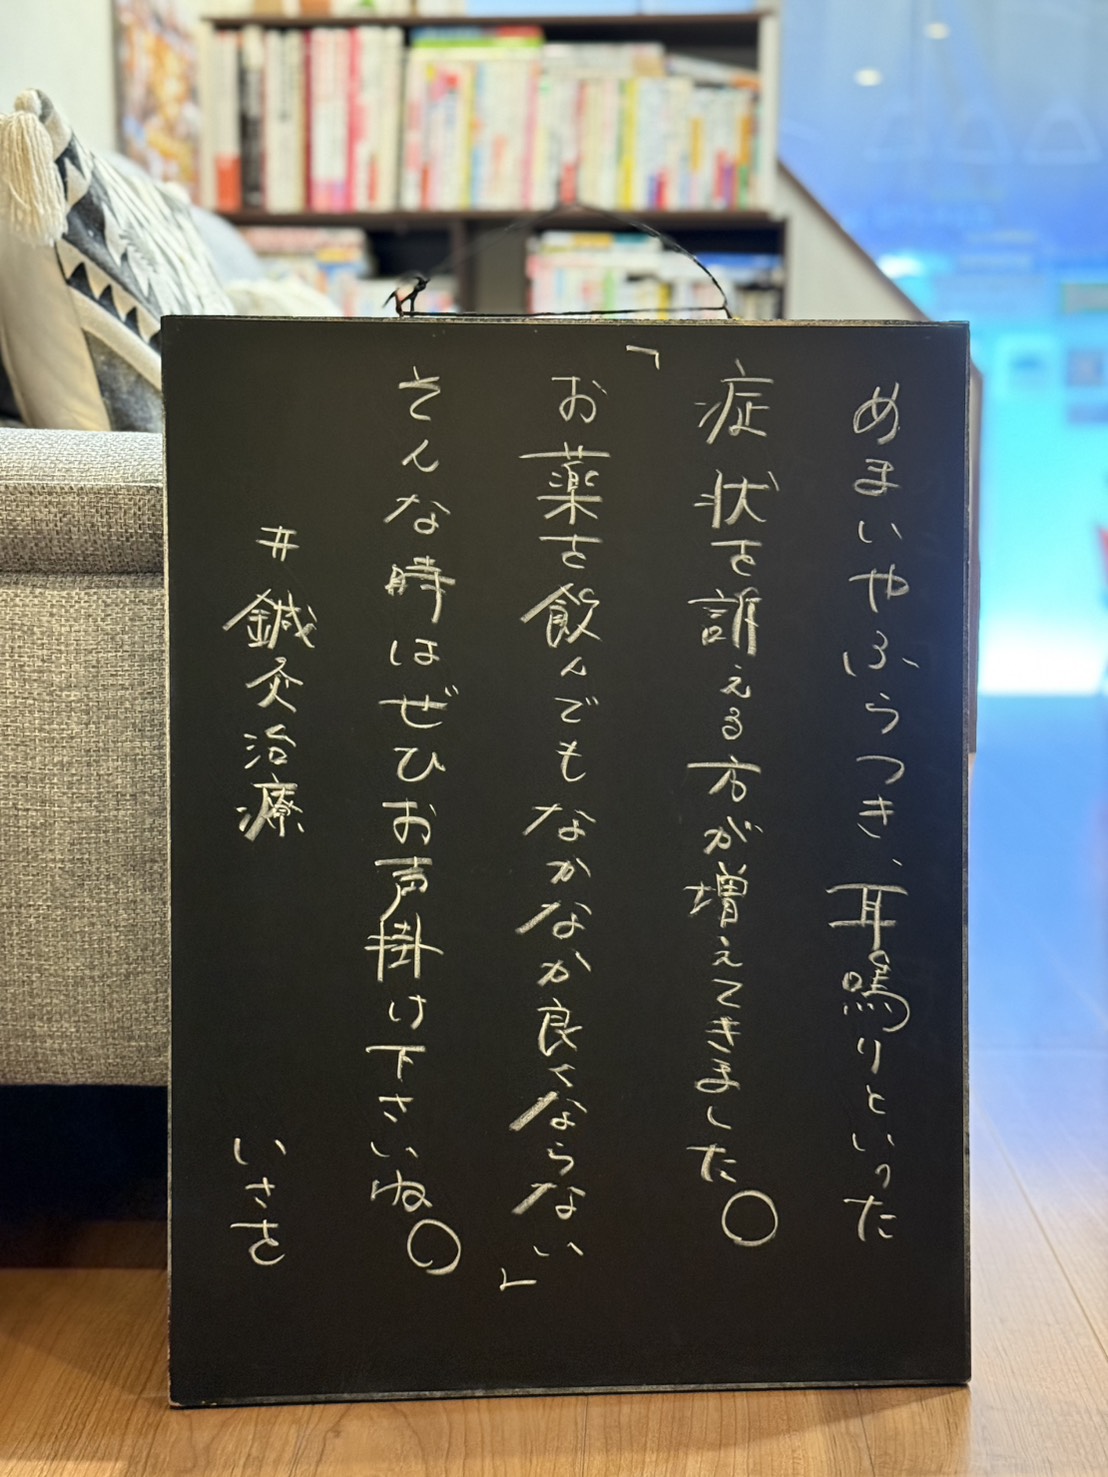 めまいやふらつき、耳鳴りといった
症状を訴える方が増えてきました。
「お薬を飲んでもなかなか良くならない」
そんな時はぜひお声掛け下さいね。
#鍼灸治療
いさを